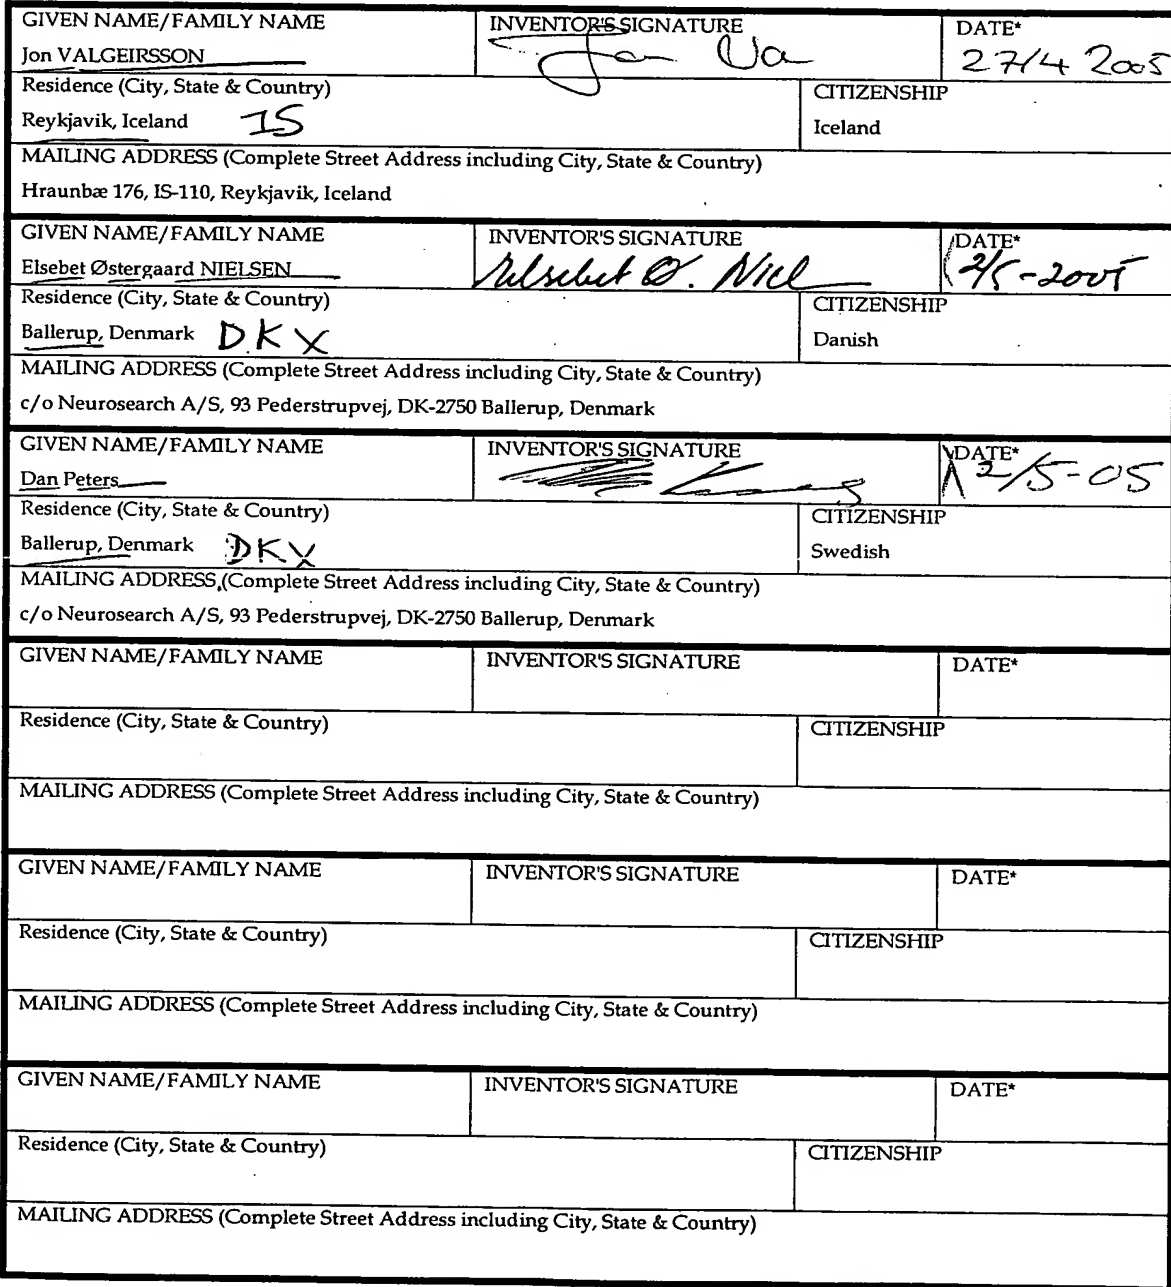 GIVEN NAME/FAMILY NAME INVENTOR'S SIGNATURE DATE*
Jon VALGEIRSSON Jon Va 27/4 2005
Residence (City, State & Country) CITIZENSHIP
Reykjavik, Iceland IS Iceland
MAILING ADDRESS (Complete Street Address including City, State & Country)
Hraunbæ 176, IS-110, Reykjavik, Iceland
GIVEN NAME/FAMILY NAME INVENTOR'S SIGNATURE DATE*
Elsebet Østergaard NIELSEN Elsebet Ø. Niel 2/5-2005
Residence (City, State & Country) CITIZENSHIP
Ballerup, Denmark DKX Danish
MAILING ADDRESS (Complete Street Address including City, State & Country)
c/o Neurosearch A/S, 93 Pederstrupvej, DK-2750 Ballerup, Denmark
GIVEN NAME/FAMILY NAME INVENTOR'S SIGNATURE DATE*
Dan Peters 2/5-05
Residence (City, State & Country) CITIZENSHIP
Ballerup, Denmark DKX Swedish
MAILING ADDRESS (Complete Street Address including City, State & Country)
c/o Neurosearch A/S, 93 Pederstrupvej, DK-2750 Ballerup, Denmark
GIVEN NAME/FAMILY NAME INVENTOR'S SIGNATURE DATE*
Residence (City, State & Country) CITIZENSHIP
MAILING ADDRESS (Complete Street Address including City, State & Country)
GIVEN NAME/FAMILY NAME INVENTOR'S SIGNATURE DATE*
Residence (City, State & Country) CITIZENSHIP
MAILING ADDRESS (Complete Street Address including City, State & Country)
GIVEN NAME/FAMILY NAME INVENTOR'S SIGNATURE DATE*
Residence (City, State & Country) CITIZENSHIP
MAILING ADDRESS (Complete Street Address including City, State & Country)